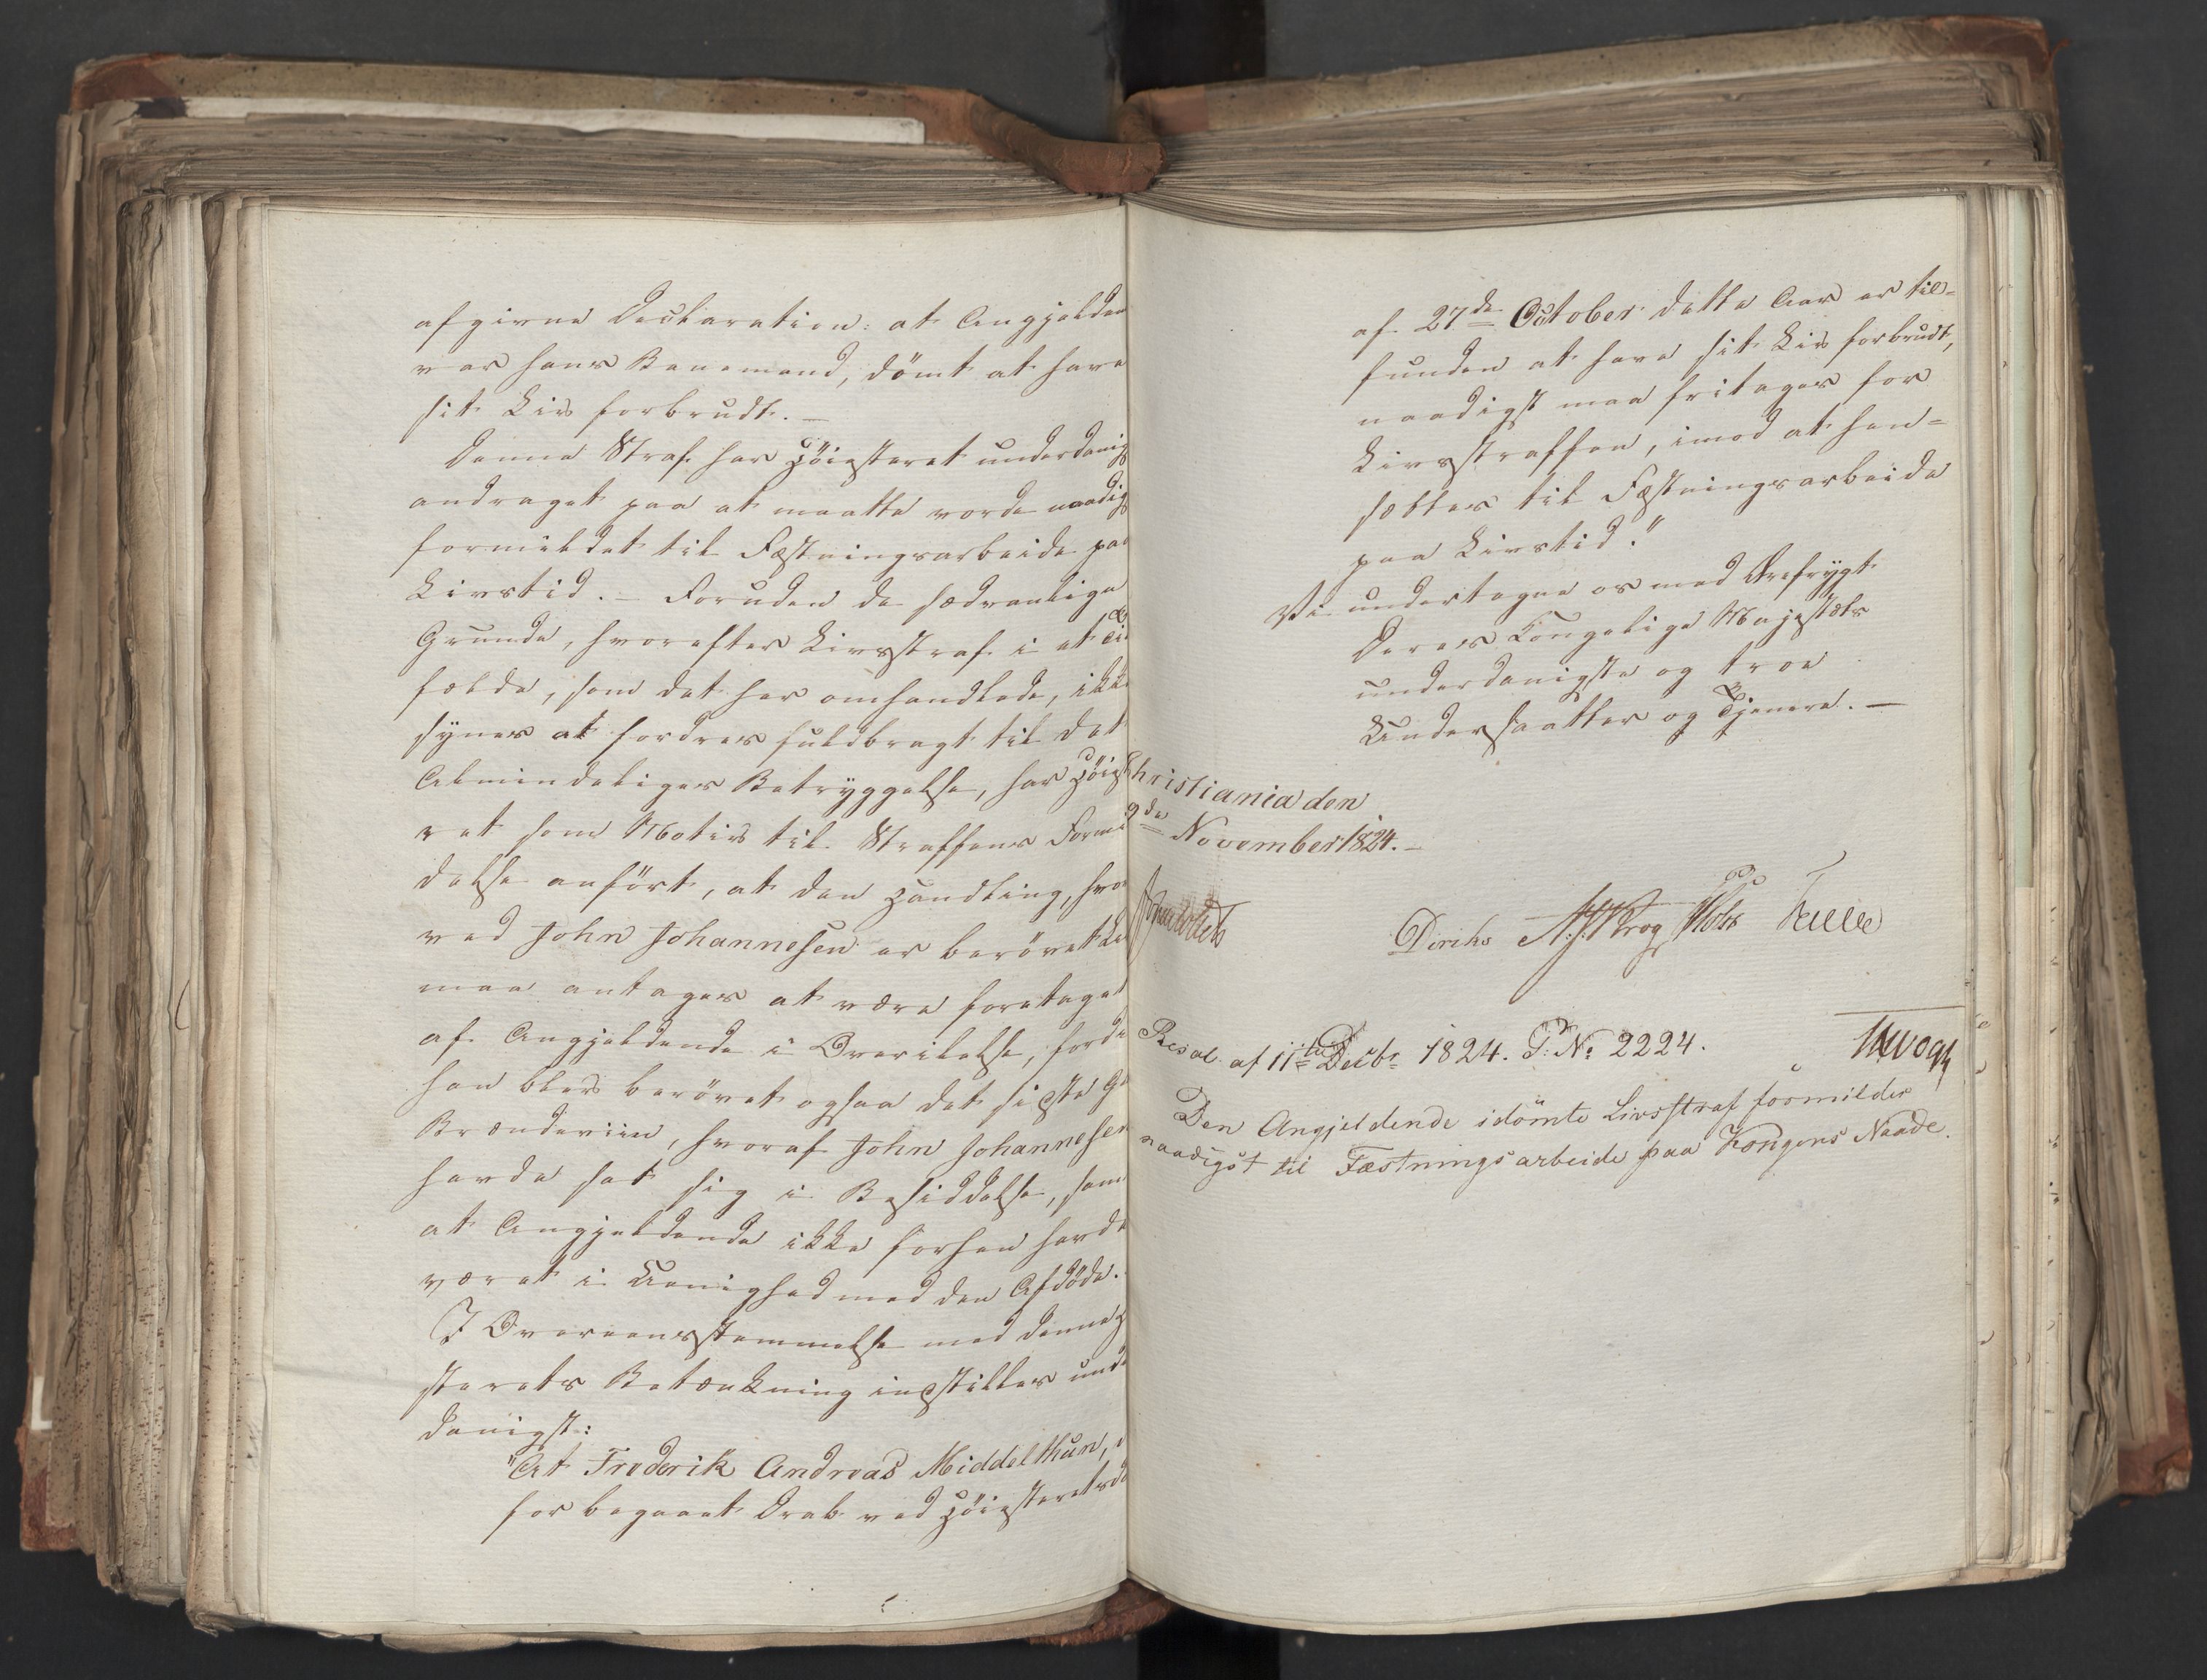 afgivne Declaration: at Angjelden
var hans Banemand, dömt at have
sit Liv forbrudt. —
Denne Straf har Höiesteret underdanigs
andraget paa at maatte vorde naadigs
formildet til Fæstningsarbeide paa
Livstid. — Foruden de sædvanlige
Grunde, hvorefter Livsstraf i et Til
fælde, som det her omhandlede, ikke
synes at fordres fuldbragt til det
Almindeliges Betryggelse, har Höieste
ret som Motiv til Straffens Formil
delse anfört, at den Handling, hvor
ved John Johannesen er berövet Liv
maa antages at være foretaget
af Angjeldende i Overilelse, fordi
han blev berövet ogsaa det sidste Gl
Brændeviin, hvoraf John Johannesen
havde sat sig i Besiddelse, samt
at Angjeldende ikke forhen havde
været i Uenighed med den Afdöde.
I Overeensstemmelse med denne H
sterets Betænkning indstilles unde
danigst:
"At Frederik Andreas Middelthun,
for begaaet Drab ved Höiesteretsdo
af 27de October dette Aar er til-
funden at have sit Liv forbrudt,
naadigst maa fritages for
Livsstraffen, imod at hen-
sættes til Fæstningsarbeide
paa Livstid."
Vi undertegne os med Ærefrygt
Deres Kongelige Majestæts
underdanigste og troe
Undersaatter og Tjenere. —
Christiania den
9de November 1824. —
Diriks A: J: Krog Holst
Resol. af 11te Decbr 1824. P: No 2224.
Den Angjeldende idömte Livsstraf formildes
naadigst til Fæstningsarbeide paa Kongens Naade.